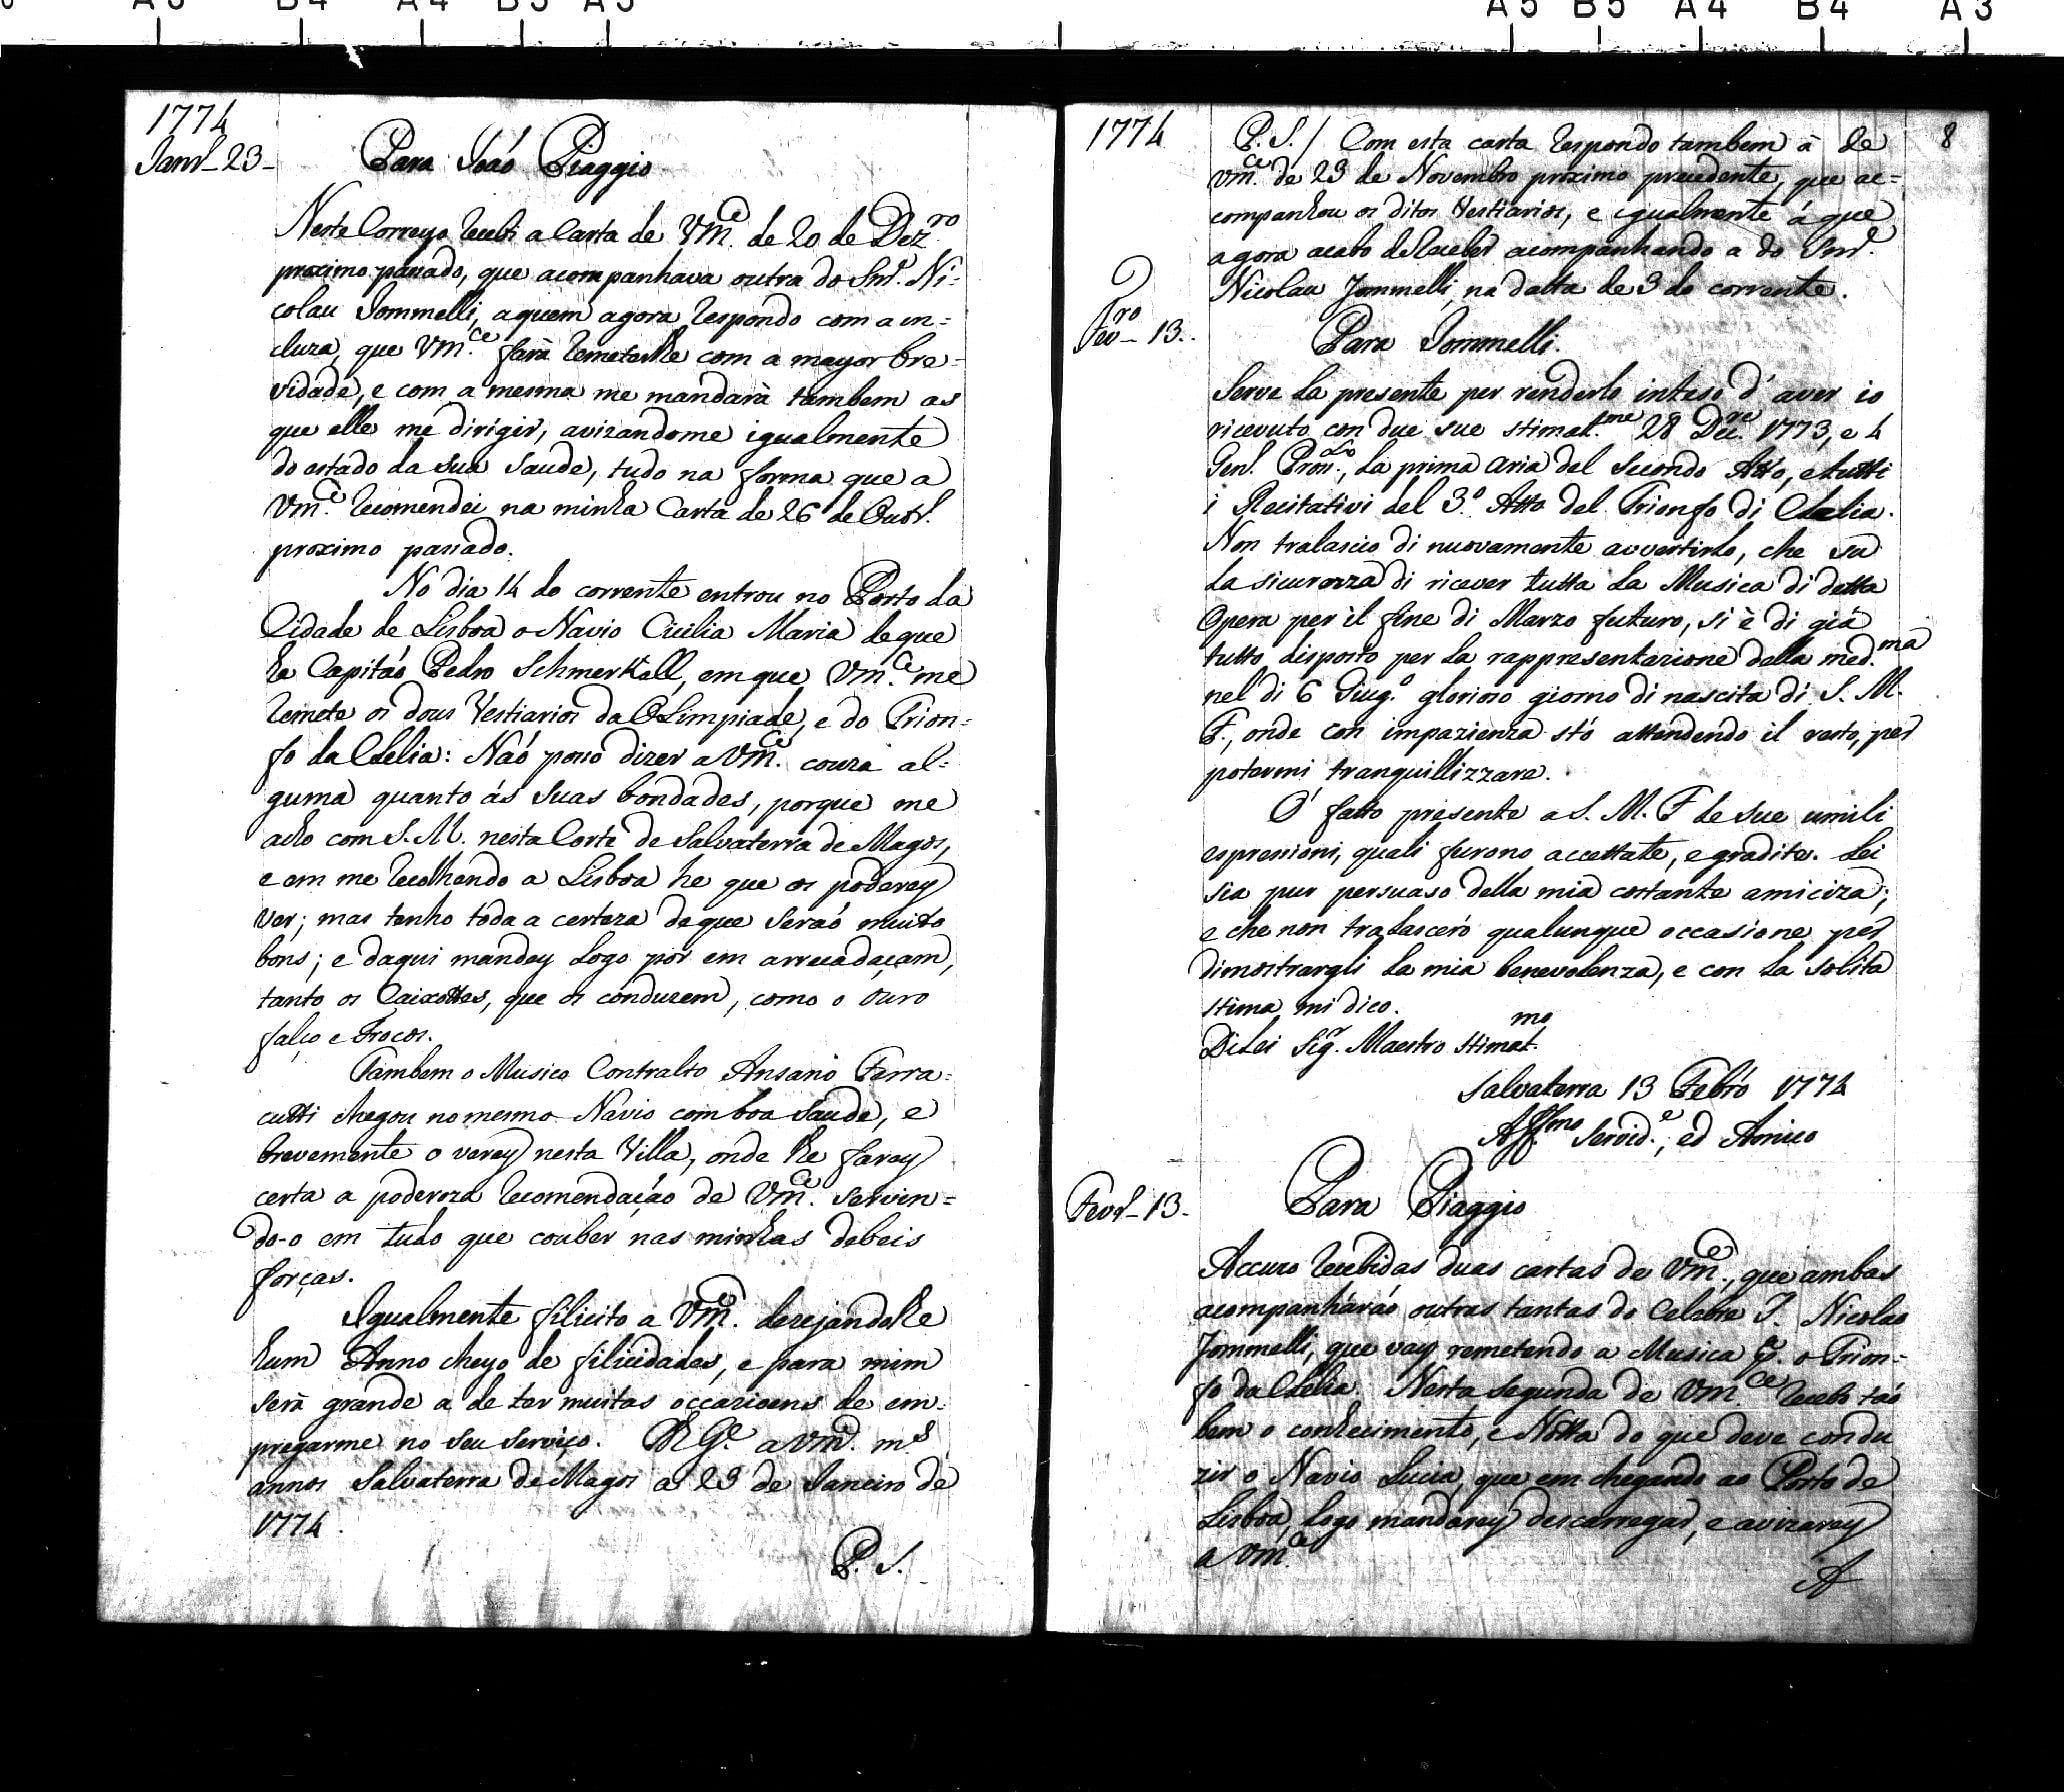 A3 B4 A4 B5 A5
A5 B5 A4 B4 A3
1774
Janr.º 23
Para Joaõ Piaggio
Neste Correyo recebi a Carta de Vm.ce de 20 de Dezr.º
proximo passado, que acompanhava outra do Snr. Ni=
colau Jommelli, aquem agora respondo com a in=
cluza, que Vm.ce farà remeterlhe com a mayor bre=
vidade, e com a mesma me mandarà tambem as
que elle me dirigir, avizandome igualmente
do estado da sua saude, tudo na forma que a
Vm.ce recomendei na minha Carta de 26 de Outr.º
proximo passado.
No dia 14 do corrente entrou no Porto da
Cidade de Lisboa o Navio Cicilia Maria de que
he Capitaõ Pedro Schmerkall, em que Vm.ce me
remete os dous Vestiarios da Olimpiade, e do Trion=
fo da Clelia: Naõ posso dizer a Vm.ce couza al=
guma quanto ás suas bondades, porque me
acho com S. M. nesta Corte de Salvaterra de Magos,
e em me recolhendo a Lisboa he que os poderey
ver; mas tenho toda a certeza de que seraõ muito
bons; e daqui mandey logo pôr em arrecadaçam,
tanto os Caixottes, que os conduzem, como o ouro
falço e Frocos.
Tambem o Musico Contralto Ansano Ferra=
cutti chegou no mesmo Navio com boa saude, e
brevemente o verey nesta Villa, onde lhe farey
certa a poderoza recomendaçaõ de Vm.ce servin=
do-o em tudo que couber nas minhas debeis
forças.
Igualmente filicito a Vm.ce dezejandolhe
hum Anno cheyo de filicidades, e para mim
serà grande a de ter muitas occazioens de em=
pregarme no seu serviço. D.s G.e a Vm.ce m.s
annos Salvaterra de Magos a 23 de Janeiro de
1774
P. S.
1774
8
P. S./ Com esta carta respondo tambem à de
Vm.ce de 23 de Novembro proximo precedente, que ac=
companhou os ditos Vestiarios, e igualmente á que
agora acabo de receber acompanhando a do Snr.
Nicolau Jommelli, na datta de 3 do corrente.
Fev.ro 13.
Para Jommelli.
Serve la presente per renderlo inteso d'aver io
ricevuto con due sue stimat.me 28 Dec.re 1773, e 4
Gen. Pros.º, la prima Aria del Secondo Atto, e tutti
i Recitativi del 3.º Atto del Trionfo di Clelia.
Non tralascio di nuovamente avvertirlo, che su
la sicurezza di ricever tutta la Musica di detta
Opera per il fine di Marzo futuro, si è di già
tutto disposto per la rappresentazione della med.ma
nel di 6 Giug.º glorioso giorno di nascita di S. M.
F., onde con impazienza stó attendendo il resto, per
potermi tranquillizzare.
Ó fatto presente a S. M. F. le sue umili
espressioni, quali furono accettate, e gradite. Lei
sia pur persuaso della mia costante amicizia;
e che non tralasceró qualunque occasione per
dimostrargli la mia benevolenza, e con la solita
stima mi dico.
Di Lei Sig.r Maestro stimat.mo
Salvaterra 13 Febró 1774
Aff.mo Servid.e, ed Amico
Fevr.º 13.
Para Piaggio
Accuzo recebidas duas cartas de Vm.ce, que ambas
acompanháraõ outras tantas do Celebre S. Nicolao
Jommelli, que vay remetendo a Musica p.ª o Trion=
fo da Clelia. Nesta segunda de Vm.ce recebo taõ
bem o conhecimento, e Notta do que deve condu
zir o Navio Lucia, que em chegando ao Porto de
Lisboa, logo mandarey descarregar, e avizarey
a Vm.ce
A